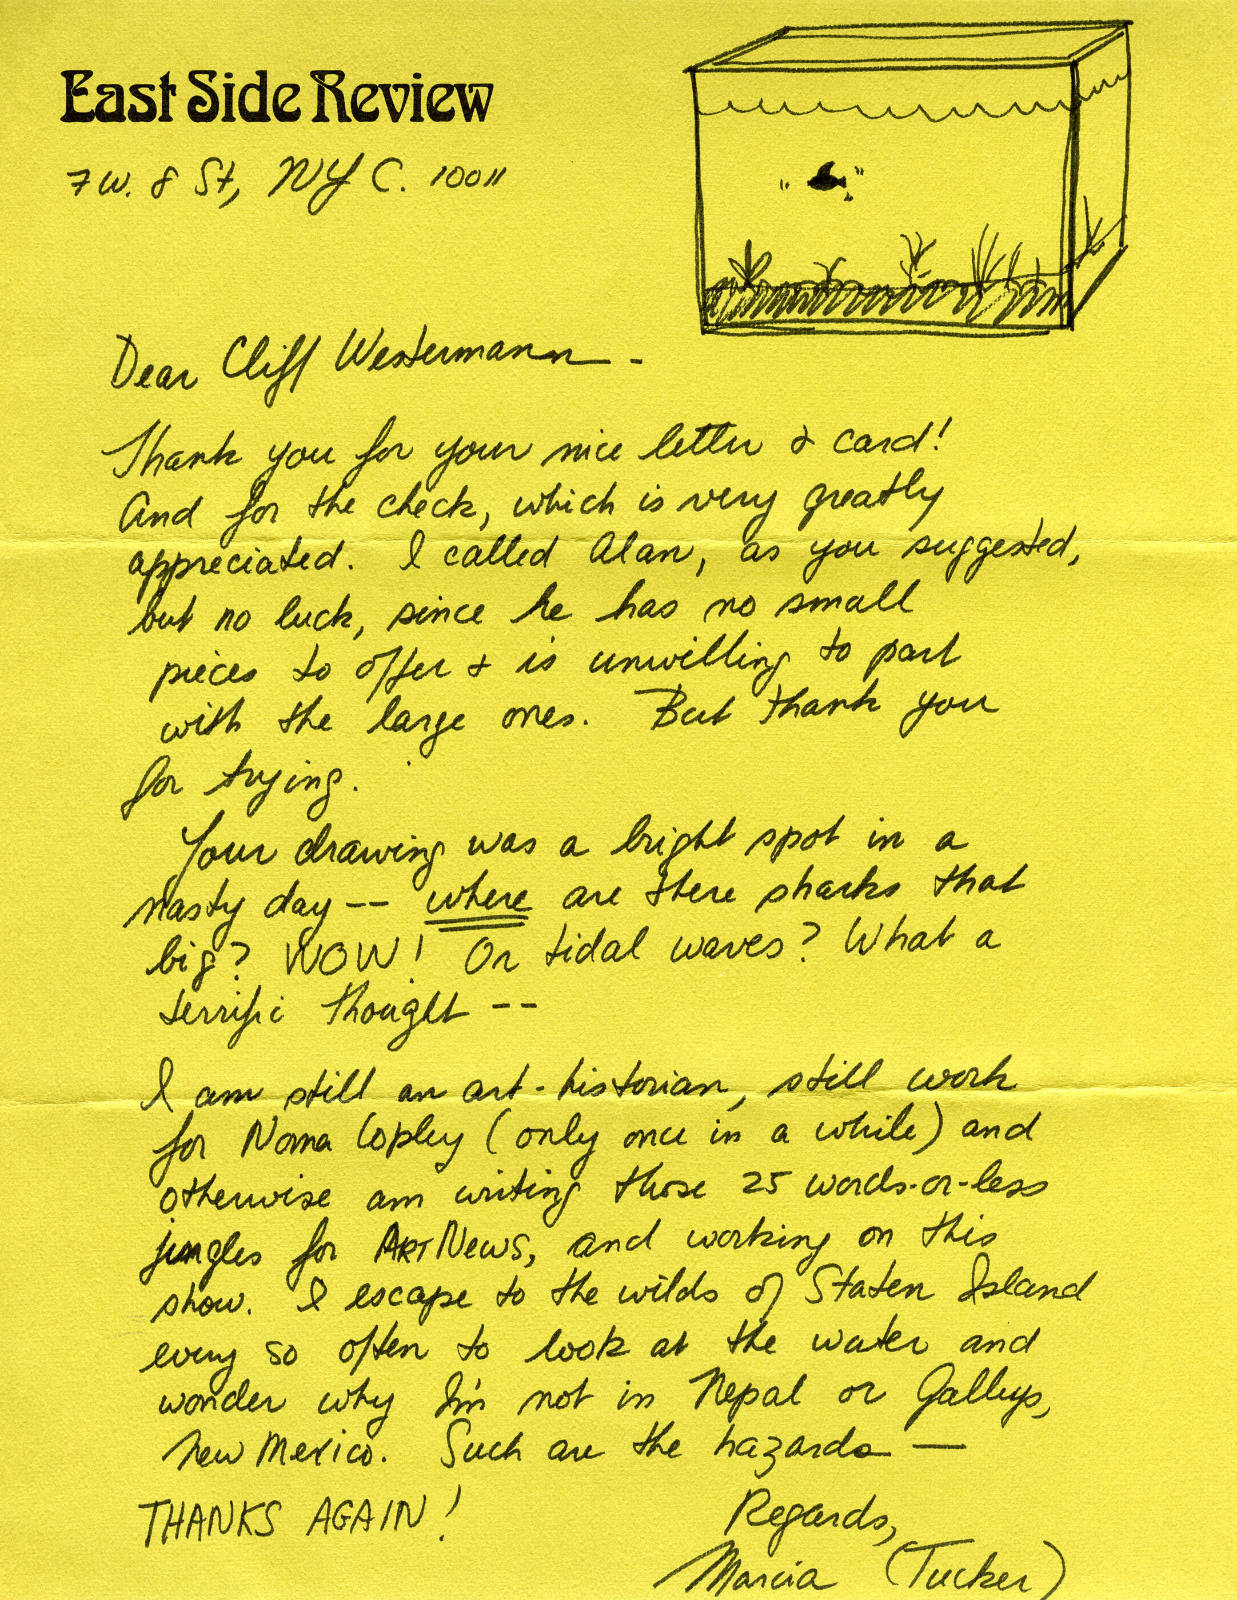 East Side Review
7 W. 8 St, NYC. 10011
Dear Cliff Westermann -
Thank you for your nice letter & card!
And for the check, which is very greatly
appreciated. I called Alan, as you suggested,
but no luck, since he has no small
pieces to offer & is unwilling to part
with the large ones. But thank you
for trying.
Your drawing was a bright spot in a
nasty day -- where are there sharks that
big? WOW! Or tidal waves? What a
terrific thought --
I am still an art-historian, still work
for Noma Copley (only once in a while) and
otherwise am writing those 25 words-or-less
jingles for ARTNews, and working on this
show. I escape to the wilds of Staten Island
every so often to look at the water and
wonder why I'm not in Nepal or Gallup,
New Mexico. Such are the hazards —
THANKS AGAIN!
Regards,
Marcia (Tucker)